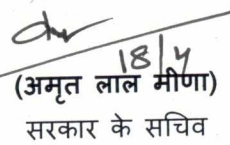 18/4
(अमृत लाल मीणा)
सरकार के सचिव